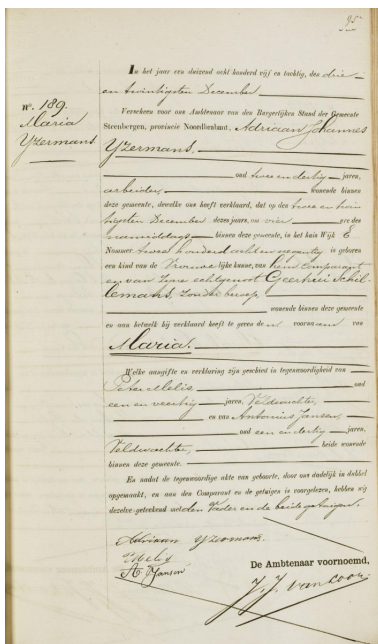 95
In het jaar een duizend acht honderd vijf en tachtig, den drie
en twintigsten December
N°. 189.
Maria
Yzermans.
Verscheen voor ons Ambtenaar van den Burgerlijken Stand der Gemeente
Steenbergen, provincie Noordbrabant, Adriaan Johannes
Yzermans.
oud twee en dertig jaren,
arbeider, wonende binnen
deze gemeente, dewelke ons heeft verklaard, dat op den twee en twin
tigsten December dezes jaars, om vier ure des
namiddags binnen deze gemeente, in het huis Wijk E
Nommer twee honderd acht en negentig is geboren
een kind van de Vrouwelijke kunne, van hem comparant
en van zijne echtgenoot Geertrui Schil-
lemans, zonder beroep,
wonende binnen deze gemeente
en aan hetwelk hij verklaard heeft te geven den voornaam van
Maria.
Welke aangifte en verklaring zijn geschied in tegenwoordigheid van
Peter Melis oud
een en veertig jaren, Veldwachter,
en van Antonius Jansen,
oud een en dertig jaren,
Veldwachter, beide wonende
binnen deze gemeente.
En nadat de tegenwoordige akte van geboorte, door ons dadelijk in dubbel
opgemaakt, en aan den Comparant en de getuigen is voorgelezen, hebben wij
dezelve geteekend met den Vader en de beide getuigen.
Adriaan Yzermans
Melis
A Jansen
De Ambtenaar voornoemd,